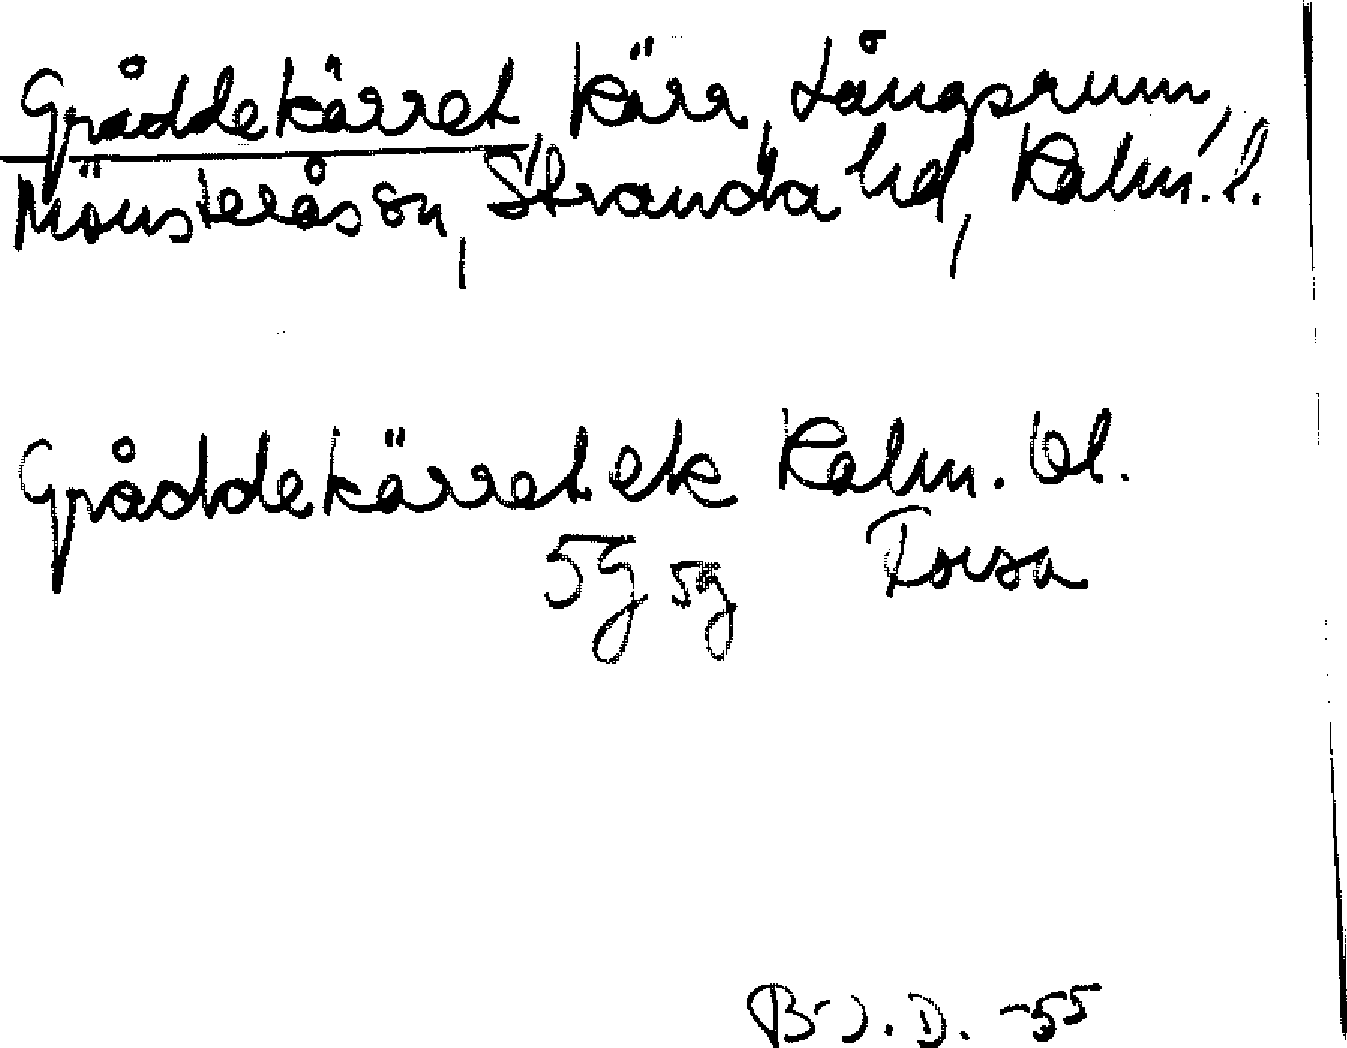 Gråddekärret, kärr, Långsrum,
Mönsterås sn, Stranda hd, Kalm. l.
Gråddekärret ek Kalm. bl.
5g 5g Forsa
B-J. D. -55